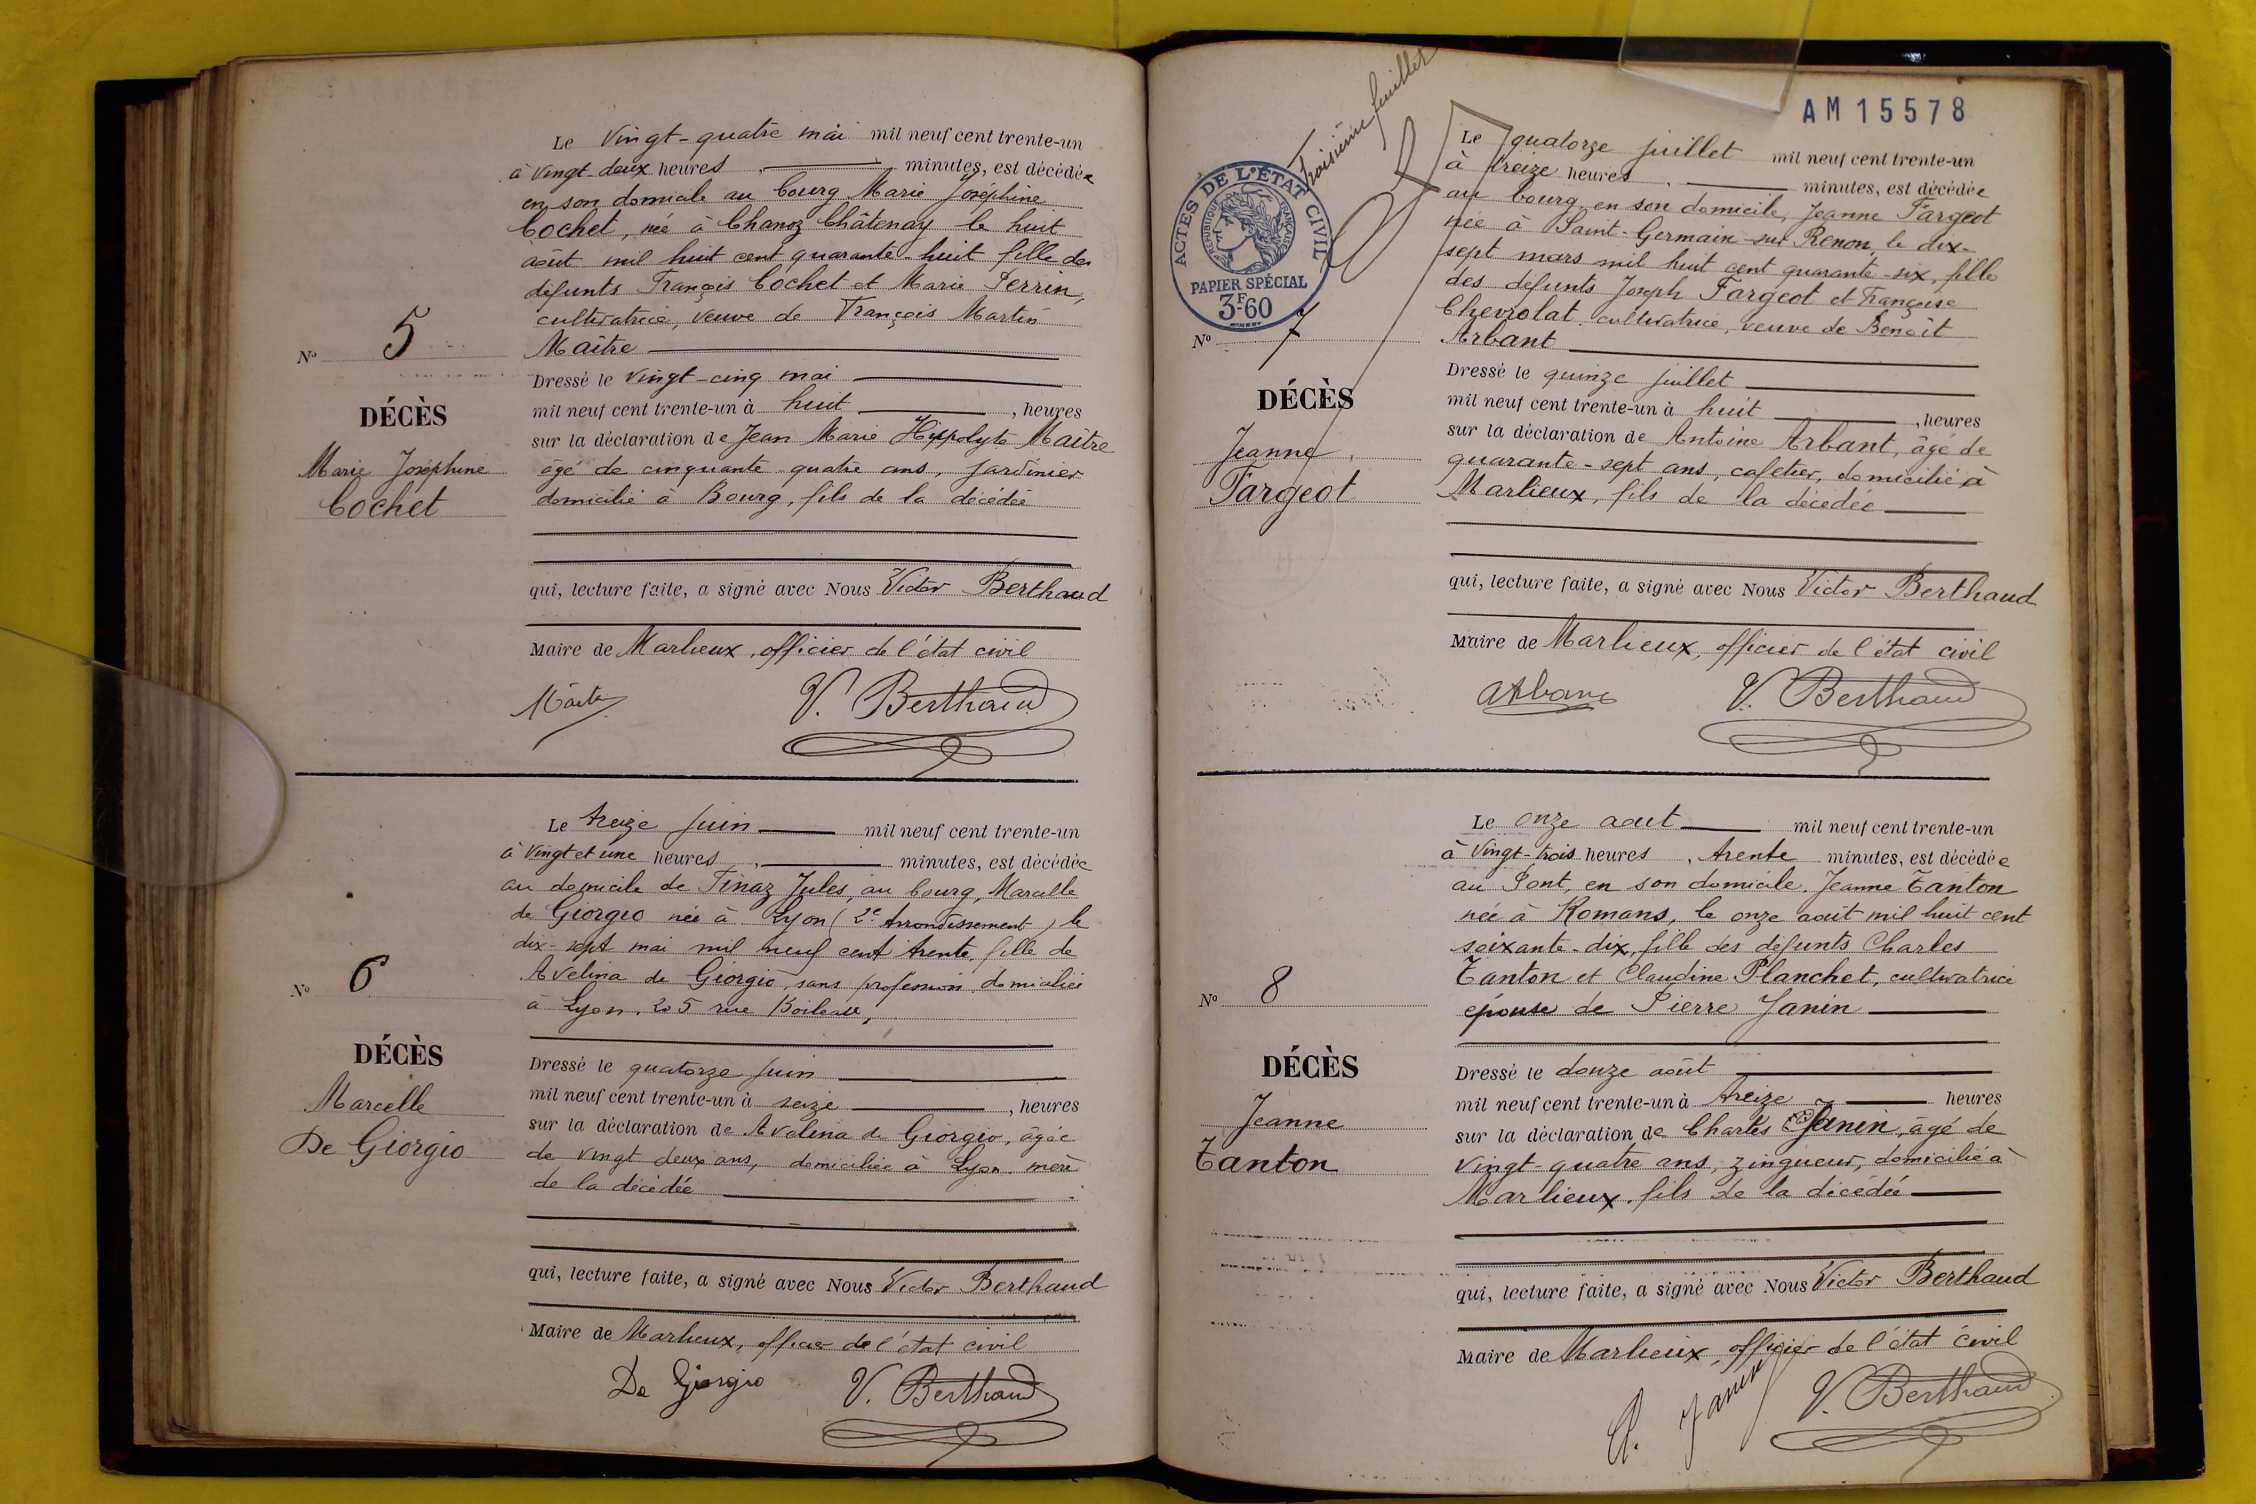 Le vingt-quatre mai mil neuf cent trente-un
à vingt-deux heures, minutes, est décédée
en son domicile au bourg Marie Joséphine
Cochet, née à Chanoz Châtenay le huit
août mil huit cent quarante-huit fille des
défunts François Cochet et Marie Perrin,
cultivatrice, veuve de François Martin
Maître
No 5
Dressé le vingt-cinq mai
DÉCÈS
mil neuf cent trente-un à huit, heures
sur la déclaration de Jean Marie Hippolyte Maître
Marie Joséphine
Cochet
âgé de cinquante quatre ans, jardinier
domicilié à Bourg, fils de la décédée
qui, lecture faite, a signé avec Nous Victor Berthaud
Maire de Marlieux, officier de l'état civil
V. Berthaud
Le treize juin mil neuf cent trente-un
à vingt et une heures, minutes, est décédée
au domicile de Tinaz Jules, au bourg, Marcelle
de Giorgio née à Lyon (2e Arrondissement) le
dix-sept mai mil neuf cent trente, fille de
Avelina de Giorgio, sans profession, domiciliée
à Lyon, 205 rue Boileau,
No 6
DÉCÈS
Marcelle
De Giorgio
Dressé le quatorze juin
mil neuf cent trente-un à seize, heures
sur la déclaration de Avelina de Giorgio, âgée
de vingt deux ans, domiciliée à Lyon, mère
de la décédée
qui, lecture faite, a signé avec Nous Victor Berthaud
Maire de Marlieux, officier de l'état civil
De Giorgio V. Berthaud
AM 15578
Troisième feuillet
ACTES DE L'ÉTAT CIVIL
RÉPUBLIQUE FRANÇAISE
PAPIER SPÉCIAL
3F60
Le quatorze juillet mil neuf cent trente-un
à treize heures, minutes, est décédée
au bourg, en son domicile, Jeanne Fargeot
née à Saint-Germain-sur Renon, le dix-
sept mars mil huit cent quarante-six, fille
des défunts Joseph Fargeot et Françoise
Chevrolat, cultivatrice, veuve de Benoît
Arbant
No 7
DÉCÈS
Jeanne
Fargeot
Dressé le quinze juillet
mil neuf cent trente-un à huit, heures
sur la déclaration de Antoine Arbant, âgé de
quarante-sept ans, cafetier, domicilié à
Marlieux, fils de la décédée
qui, lecture faite, a signé avec Nous Victor Berthaud
Maire de Marlieux, officier de l'état civil
V. Berthaud
Le onze aout mil neuf cent trente-un
à vingt-trois heures, trente minutes, est décédée
au Pont, en son domicile, Jeanne Tanton
née à Romans, le onze août mil huit cent
soixante-dix, fille des défunts Charles
Tanton et Claudine Planchet, cultivatrice
épouse de Pierre Janin
No 8
DÉCÈS
Jeanne
Tanton
Dressé le douze août
mil neuf cent trente-un à treize heures
sur la déclaration de Charles Janin, âgé de
vingt-quatre ans, zingueur, domicilié à
Marlieux, fils de la décédée
qui, lecture faite, a signé avec Nous Victor Berthaud
Maire de Marlieux, officier de l'état civil
Janin V. Berthaud